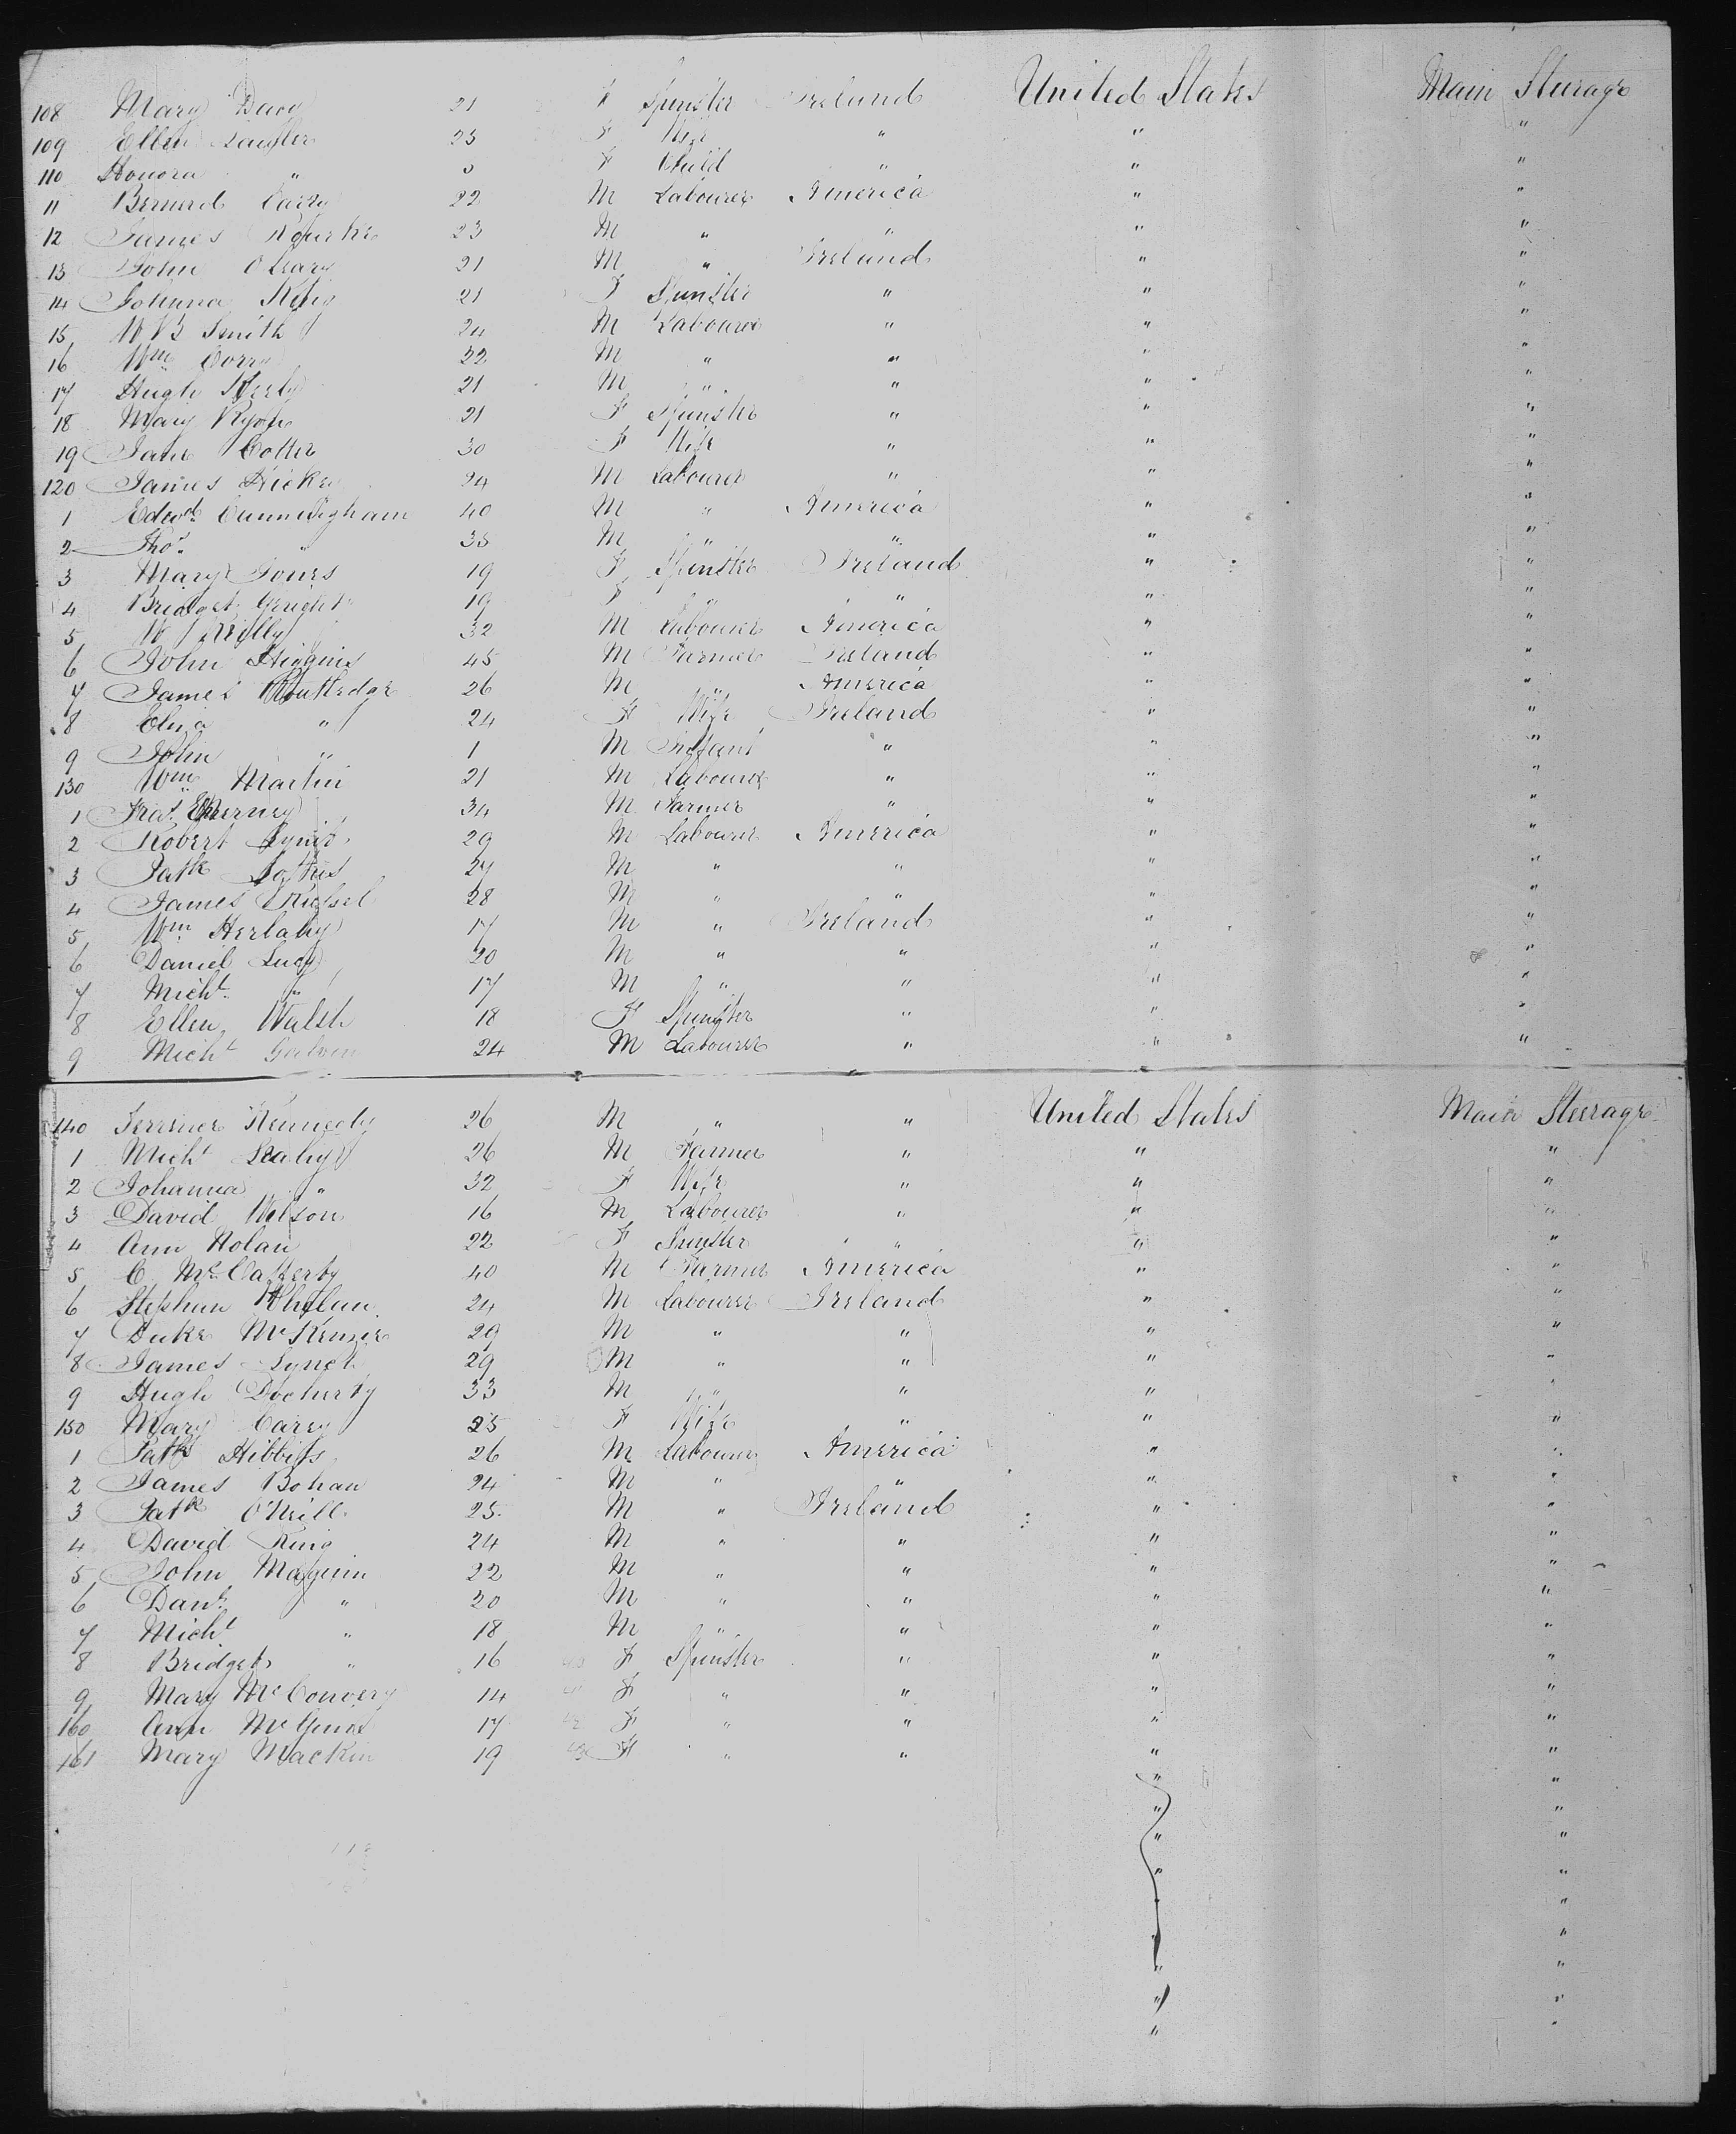 108 Mary Davy 21 F Spinster Ireland United States Main Steerage
109 Ellen 23 F Wife " " "
110 Honora " F Child " " "
11 Bernard Carry 22 M Labourer America " "
12 James Rourke 23 M " " " "
13 John O'Leary 21 M " Ireland " "
14 Johanna King 21 F Spinster " " "
15 W B Smith 24 M Labourer " " "
16 Wm Corry 22 M " " " "
17 Hugh 21 M " " " "
18 Mary Ryan 21 F Spinster " " "
19 Jane Cotter 30 F Wife " " "
120 James Hickey 24 M Labourer " " "
1 Edwd Cunningham 40 M " America " "
2 Thos " 35 M " " " "
3 Mary Jones 19 F Spinster Ireland " "
4 Bridget 19 F " " " "
5 W Reilly 32 M Labourer America " "
6 John Higgins 45 M Farmer Ireland " "
7 James Routledge 26 M " America " "
8 Eliza " 24 F Wife Ireland " "
9 John " 1 M Infant " " "
130 Wm Martin 21 M Labourer " " "
1 34 M Farmer " " "
2 Robert 29 M Labourer America " "
3 Patk Loftus 27 M " " " "
4 James Russel 28 M " " " "
5 Wm Herlahy 17 M " Ireland " "
6 Daniel Lucy 20 M " " " "
7 Michl " 17 M " " " "
8 Ellen Walsh 18 F Spinster " " "
9 Michl Galvin 24 M Labourer " " "
140 Terrence Kennedy 26 M " " United States Main Steerage
1 Michl Leahy 26 M Farmer " " "
2 Johanna " 32 F Wife " " "
3 David Wilson 16 M Labourer " " "
4 Ann Nolan 22 F Spinster " " "
5 C McClatterby 40 M Farmer America " "
6 Stephen Whelan 24 M Labourer Ireland " "
7 Duke McKenzie 29 M " " " "
8 James Lynch 29 M " " " "
9 Hugh Docherty 33 M " " " "
150 Mary Carey 25 F Wife " " "
1 Patk Hibbits 26 M Labourer America " "
2 James Bohan 24 M " " " "
3 Patk O'Neill 25 M " Ireland " "
4 David King 24 M " " " "
5 John Maguin 22 M " " " "
6 Danl " 20 M " " " "
7 Michl " 18 M " " " "
8 Bridget " 16 F Spinster " " "
9 Mary McConvery 14 F " " " "
160 Ann McGinis 17 F " " " "
161 Mary Mackin 19 F " " " "